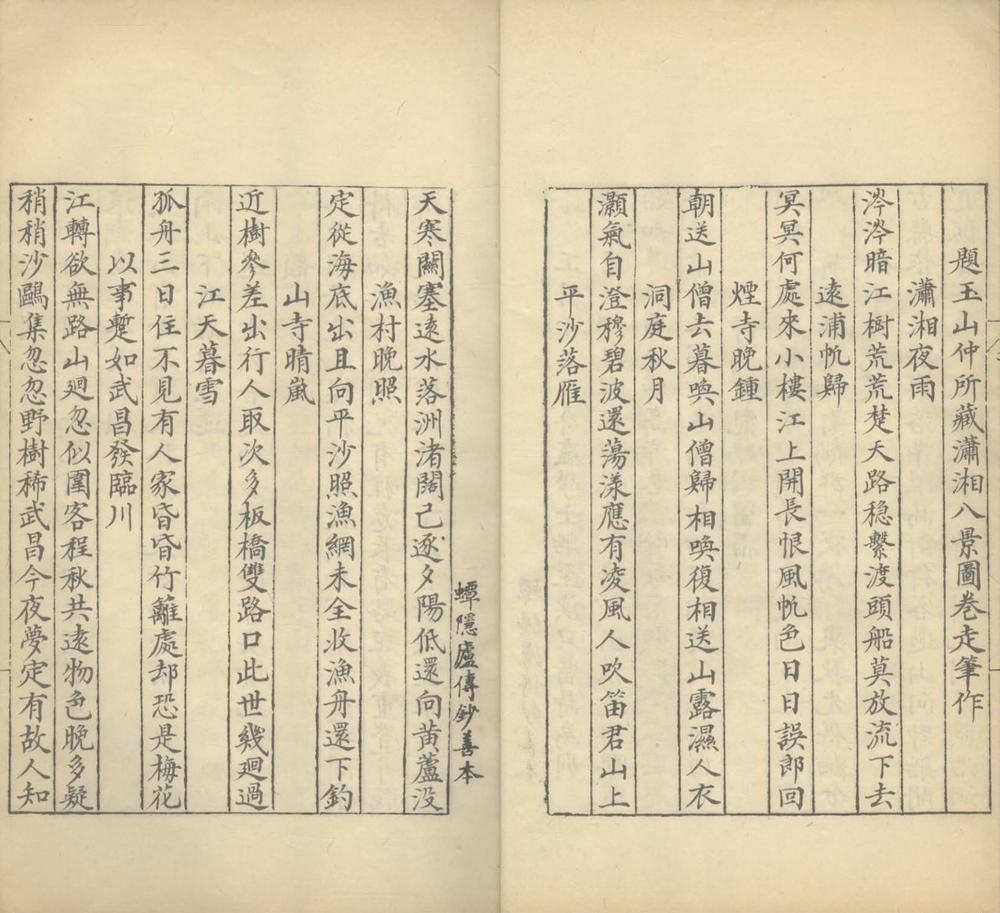 題玉山仲所藏瀟湘八景圖卷走筆作
瀟湘夜雨
涔涔暗江樹荒荒楚天路穏繫渡頭船莫放流下去
遠浦帆歸
冥冥何處來小樓江上開長恨風帆色日日誤郎回
煙寺晚鍾
朝送山僧去暮喚山僧歸相喚復相送山露濕人衣
洞庭秋月
灝氣自澄穆碧波還蕩漾應有凌風人吹笛君山上
平沙落雁
天寒關塞遠水落洲渚闊已逐夕陽低還向黃蘆没
漁村晚照
定從海底出且向平沙照漁網未全收漁舟還下釣
山寺晴嵐
近樹參差出行人取次多板橋雙路口此世幾廻過
江天暮雪
孤舟三日住不見有人家昏昏竹籬處却恐是梅花
以事蹔如武昌發臨川
江轉欲無路山廻忽似圍客程秋共遠物色晚多疑
稍稍沙鷗集忽忽野樹稀武昌今夜夢定有故人知
蟫隱廬傳鈔善本